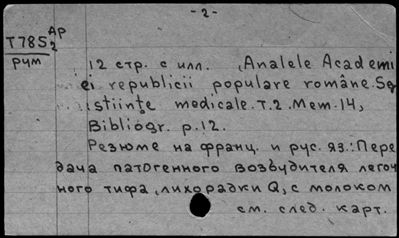 - 2 -
Ар
Т785 2
рум
12 стр. с илл. (Analele Academi
ei republicii populare române. Ser
stiinţe medicale. T.2. Mem. 14,
Bibliogr. p. 12.
Резюме на франц. и рус. яз.: Пере
дача патогенного возбудителя легоч
ного тифа, лихорадки Q, с молоком
см. след. карт.